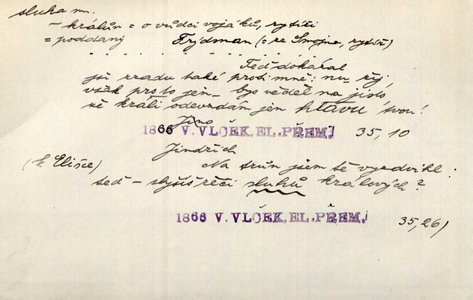 sluha m.
– králův = o vůdci vojáků, rytíři
= poddaný Frydman (= ze Smojna, rytíř)
Teď dokázal
jsi zradu také proti mně: nu
však proto jen – bys věděl na jisto,
že králi odevzdám jen hlavu tvou!
Jíno
1866 V. VLČEK, EL. PŘEM. 35, 10
Jindřich
(k Elišce) Na trůn jsem tě vyzdvihl:
teď – slyšíš řeči sluhů králových?
1866 V. VLČEK, EL. PŘEM. 35, 26)